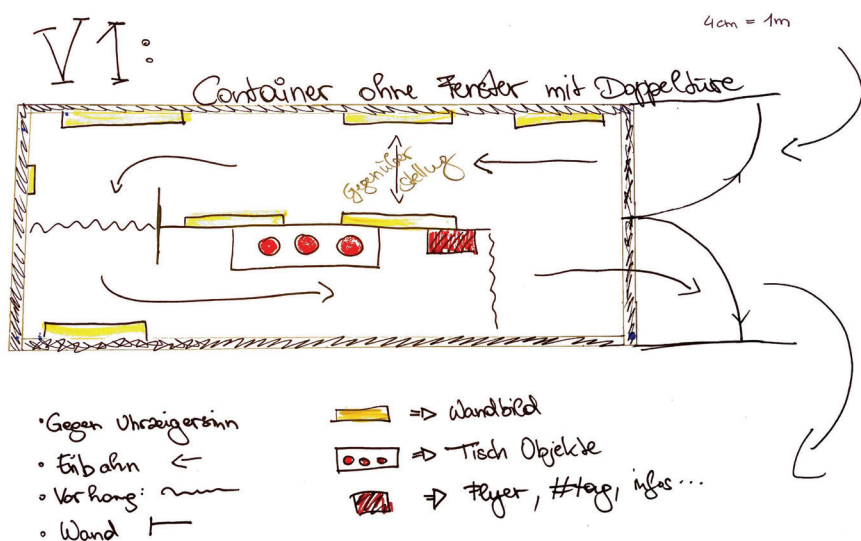 V1:
4cm = 1m
Container ohne Fenster mit Doppeltüre
Gegenüber
stellung
• Gegen Uhrzeigersinn
• Einbahn ←
• Vorhang:
• Wand
⇒ Wandbild
⇒ Tisch Objekte
⇒ Flyer, #tag, infos...